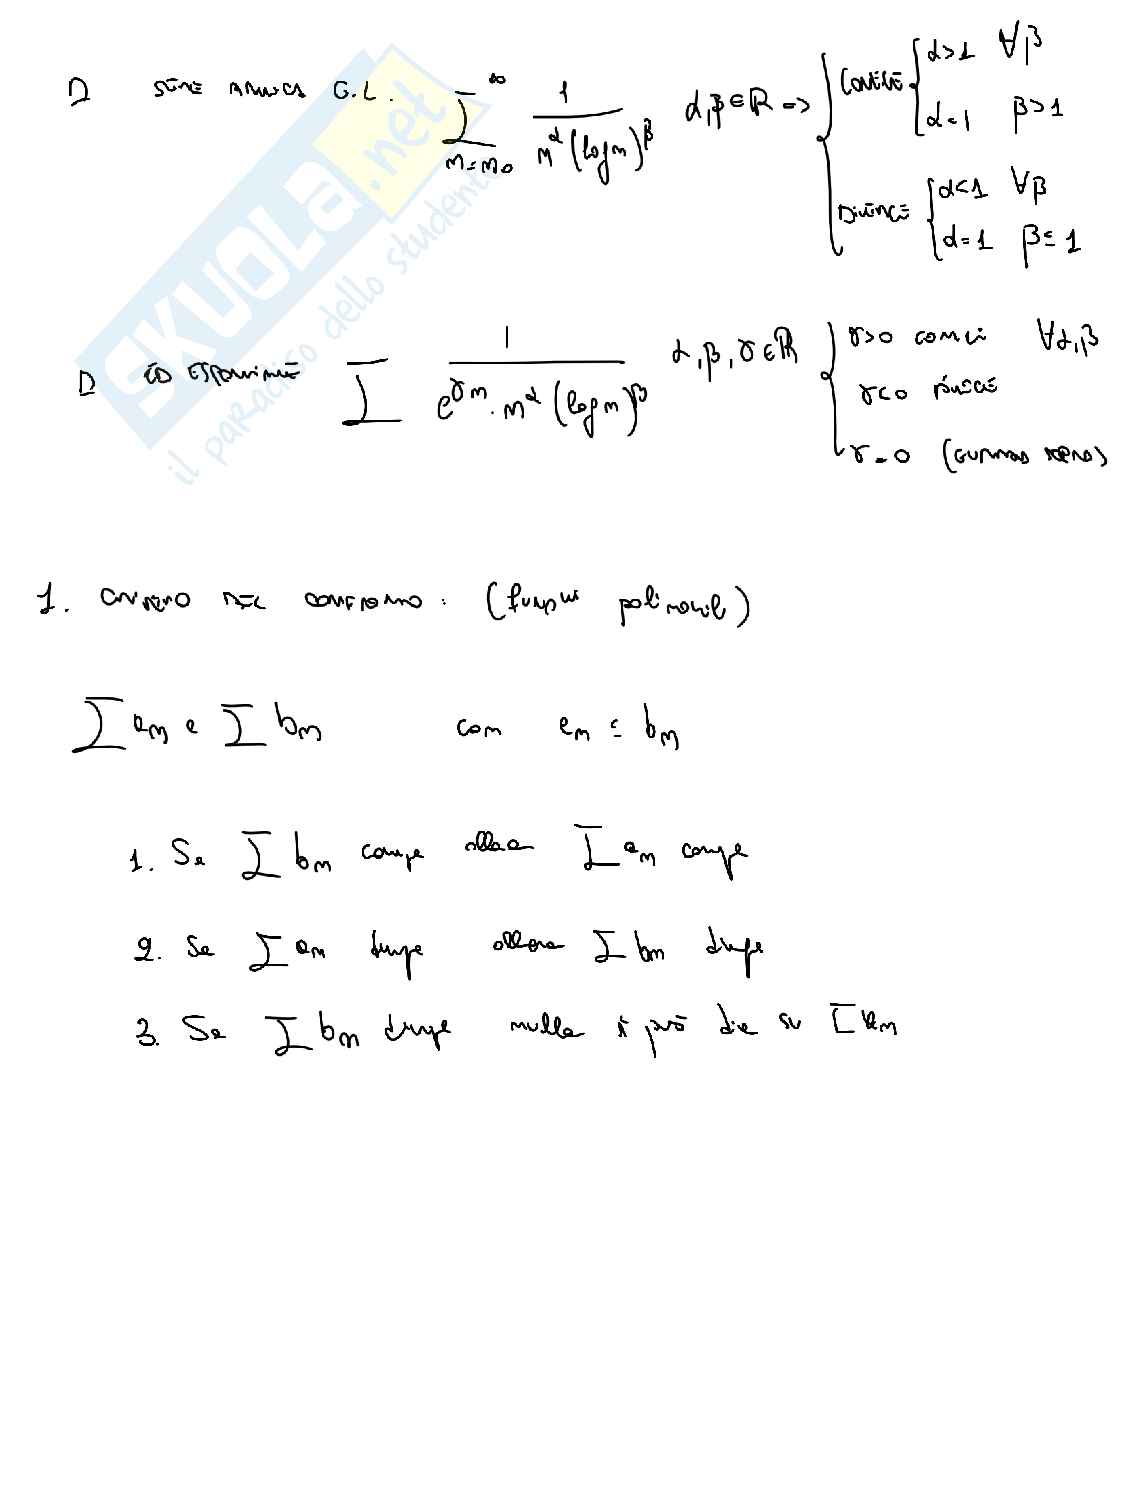 D SERIE ARMONICA G.L. ∑_{n=n0}^{∞} 1/(n^α (log n)^β) α,β∈ℝ => { CONVERGE { α>1 ∀β
α=1 β>1
DIVERGE { α<1 ∀β
α=1 β≤1
D ESPONENZIALE ∑ 1/(e^{γn} · n^α (log n)^β) α,β,γ∈ℝ { γ>0 ∀α,β
γ<0 DIVERGE
γ=0
SKUOLA.net
il paradiso dello studente
1. CRITERIO DEL CONFRONTO: (funzioni polinomiali)
∑ an e ∑ bn con an ≤ bn
1. Se ∑ bn converge allora ∑ an converge
2. Se ∑ an diverge allora ∑ bn diverge
3. Se ∑ bn diverge nulla si può dire su ∑ an